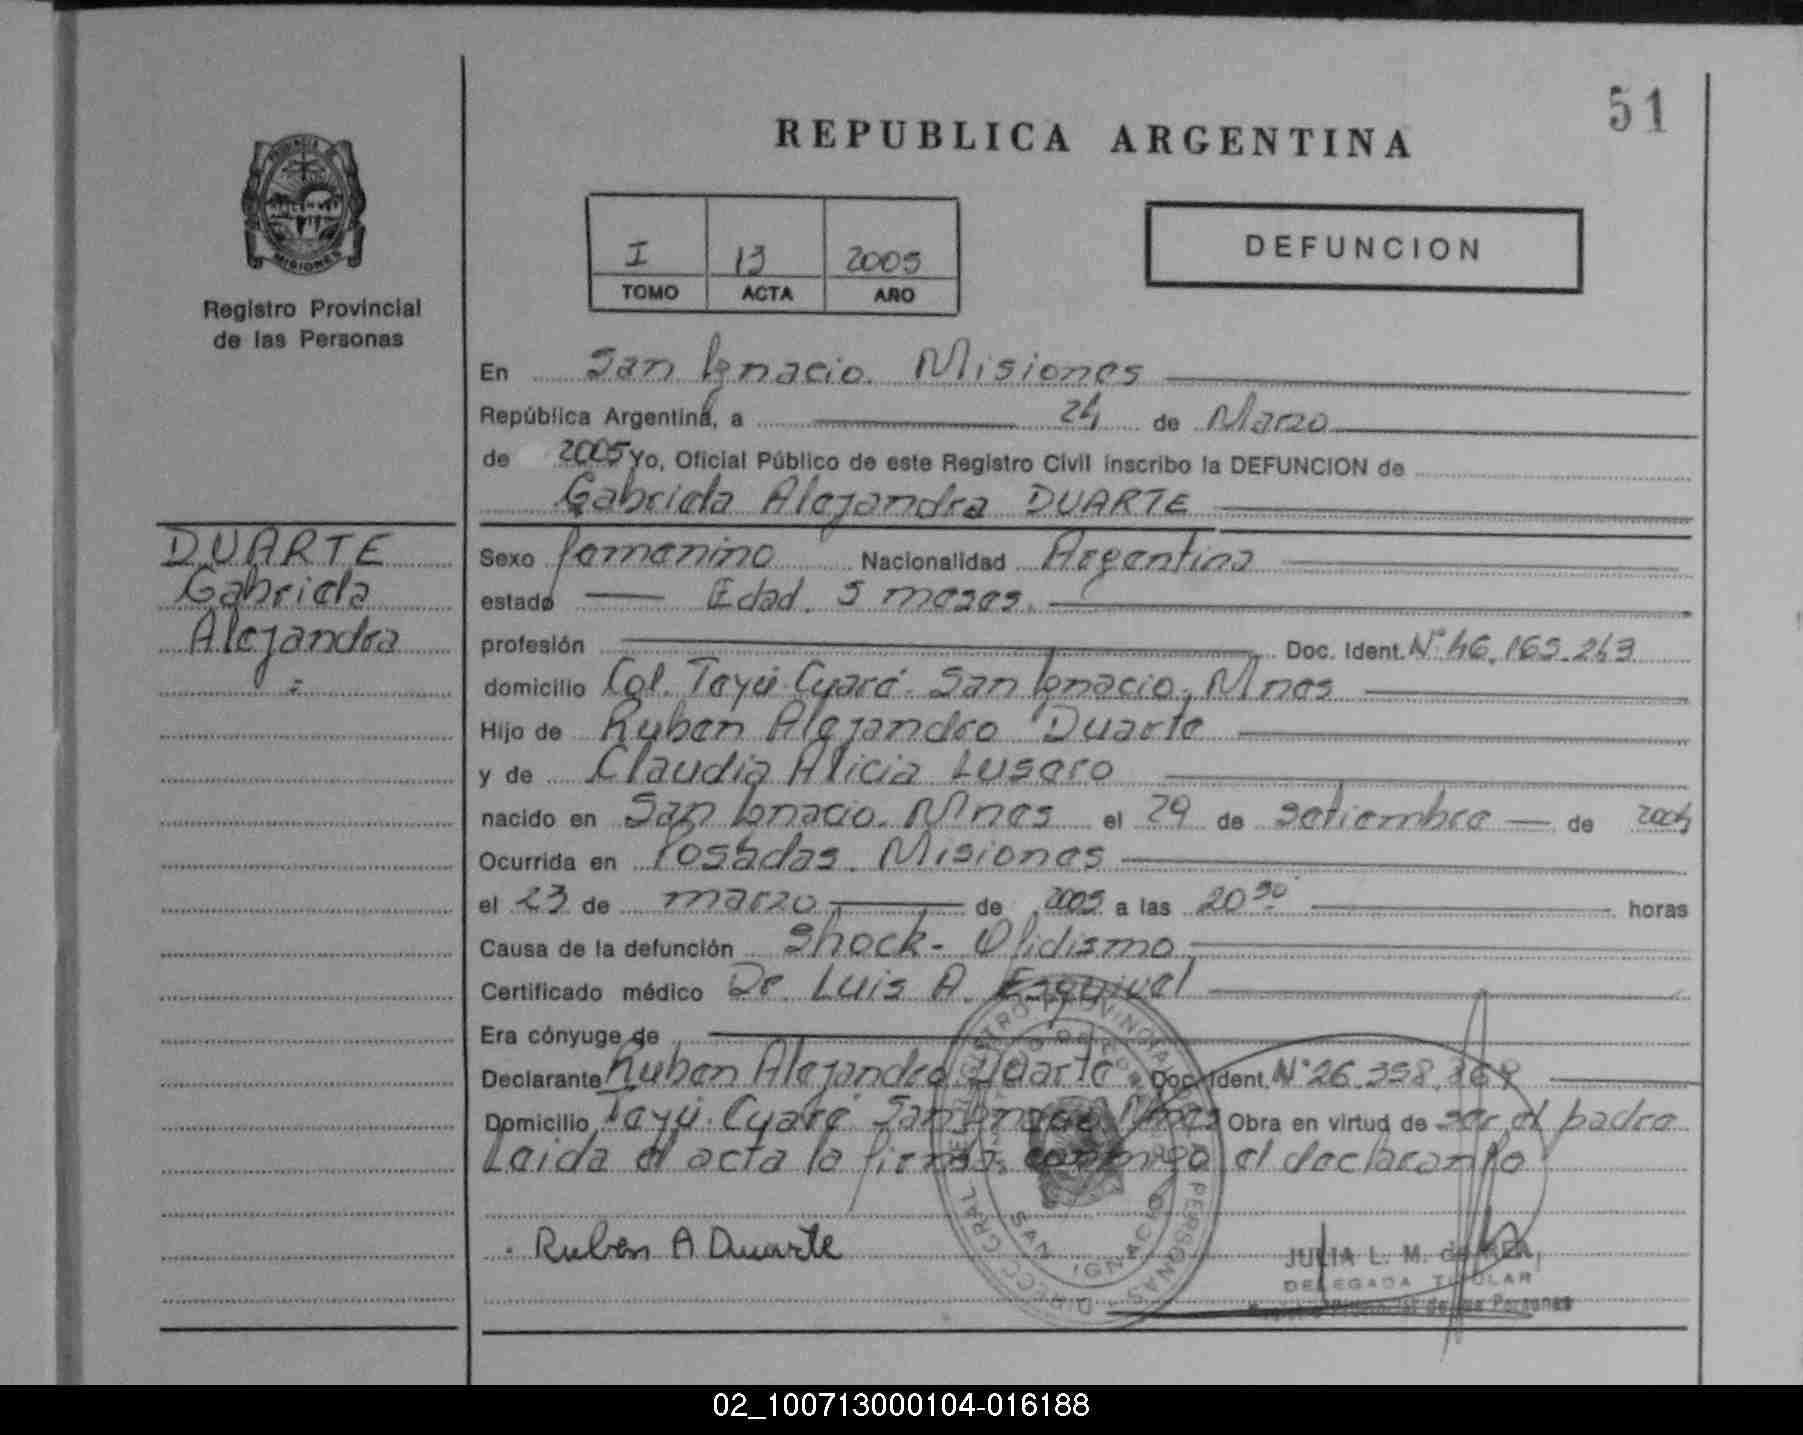 51
REPUBLICA ARGENTINA
PROVINCIA
MISIONES
Registro Provincial
de las Personas
I 13 2005
TOMO ACTA AÑO
DEFUNCION
En San Ignacio. Misiones
República Argentina, a 24 de Marzo
de 2005 yo, Oficial Público de este Registro Civil inscribo la DEFUNCION de
Gabriela Alejandra DUARTE
DUARTE
Gabriela
Alejandra
Sexo femenino Nacionalidad Argentina
estado — Edad. 5 meses.
profesión Doc. Ident. Nº 46.165.243
domicilio Col. Teyú Cuaré. San Ignacio, Mnes
Hijo de Ruben Alejandro Duarte
y de Claudia Alicia Lusero
nacido en San Ignacio. Mnes el 29 de setiembre — de 2004
Ocurrida en Posadas. Misiones
el 23 de marzo de 2005 a las 20 30 horas
Causa de la defunción Shock - Ofidismo
Certificado médico Dr Luis A. Esquivel
Era cónyuge de
Declarante Ruben Alejandro Duarte Doc. Ident. Nº 26.358.
Domicilio Teyú Cuaré San Ignacio Mnes Obra en virtud de ser el padre
Leida el acta la firma conmigo el declarante
Ruben A Duarte
SAN IGNACIO
JULIA L. M. de
DELEGADA TITULAR
de las Personas
02_100713000104-016188